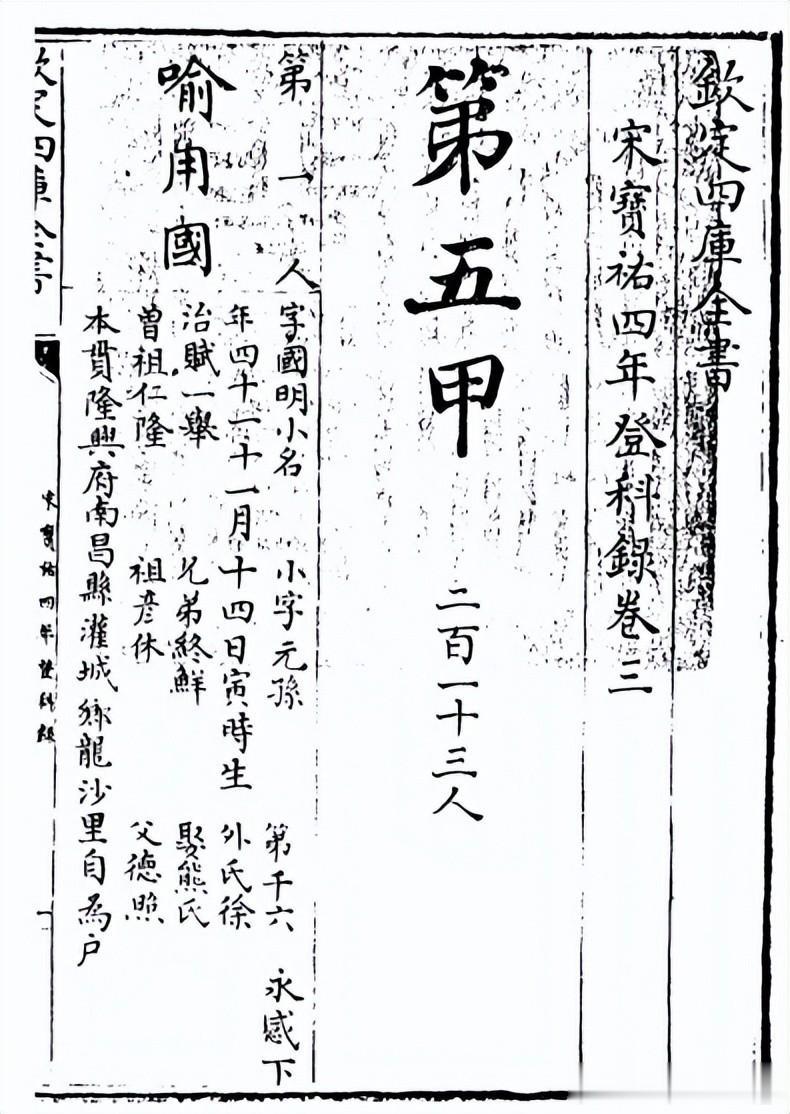 欽定四庫全書
宋寶祐四年登科錄卷三
第五甲 二百一十三人
第一人 字國明小名 小字元孫 第千六 永感下
喻用國 年四十一十一月十四日寅時生 外氏徐
治賦一舉 兄弟終鮮 娶熊氏
曽祖仁隆 祖彦休 父德照
本貫隆興府南昌縣灌城鄉龍沙里自為戶
欽定四庫全書
宋寶祐四年登科錄
一